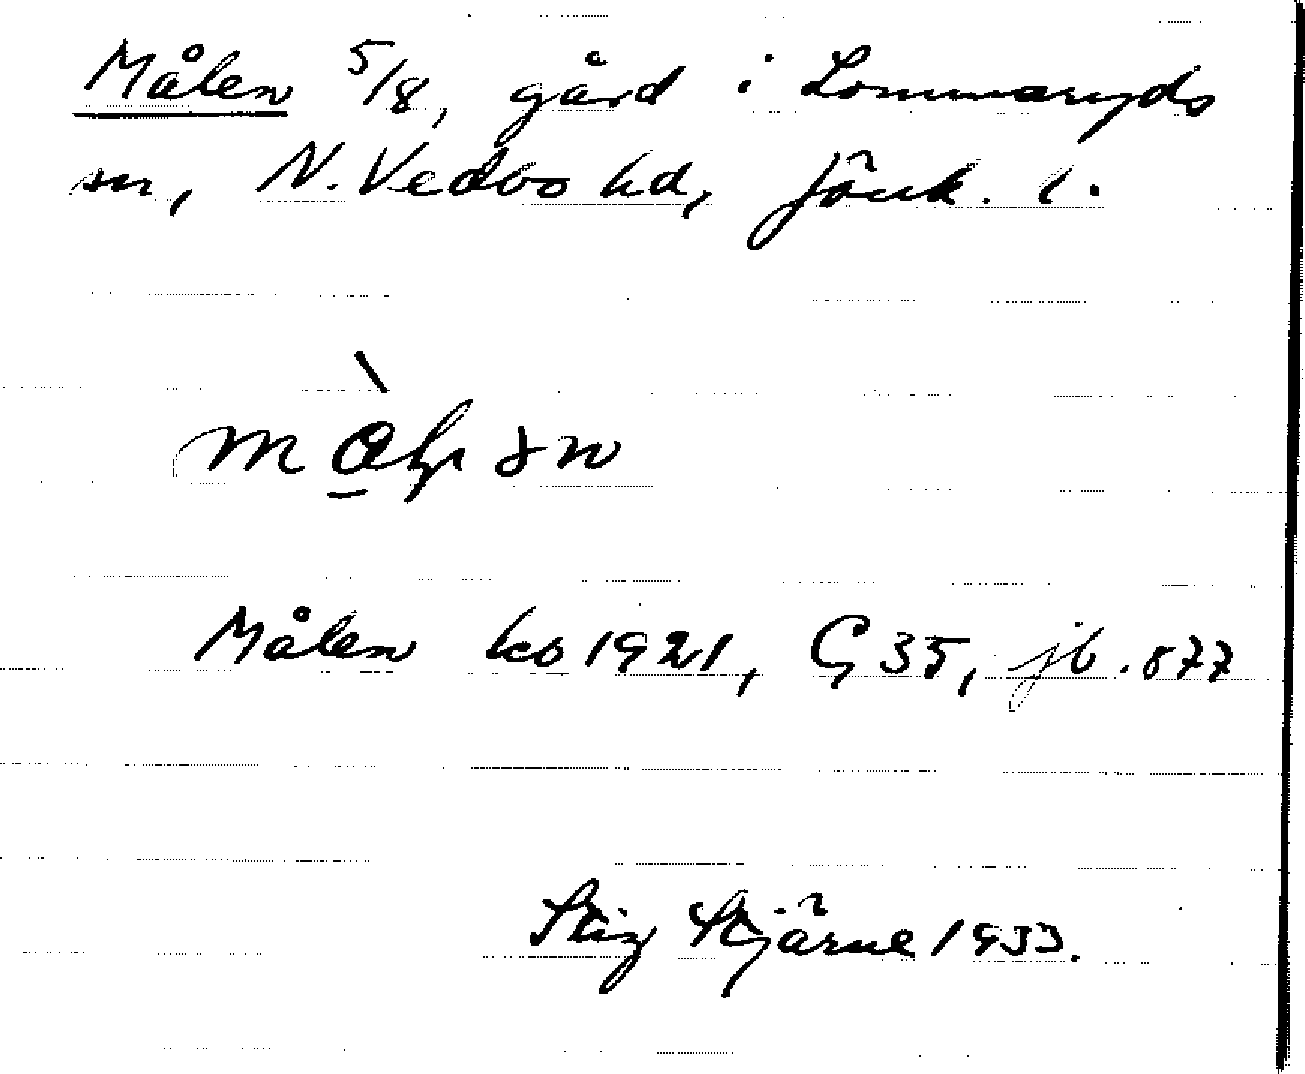 Målen 5/8, gård i Lommaryds
sn, N. Vedbo hd, Jönk. l.
Målen kb 1921, G 35, jb. 877
Stig Stjärne 1933.